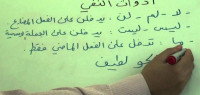 أدوات النفي
- لا - لم - لن : يدخلن على الفعل المضارع
- ليس - ليست : يدخلن على الجملة الاسمية
- ما : تدخل على الفعل الماضي فقط .
لطيف